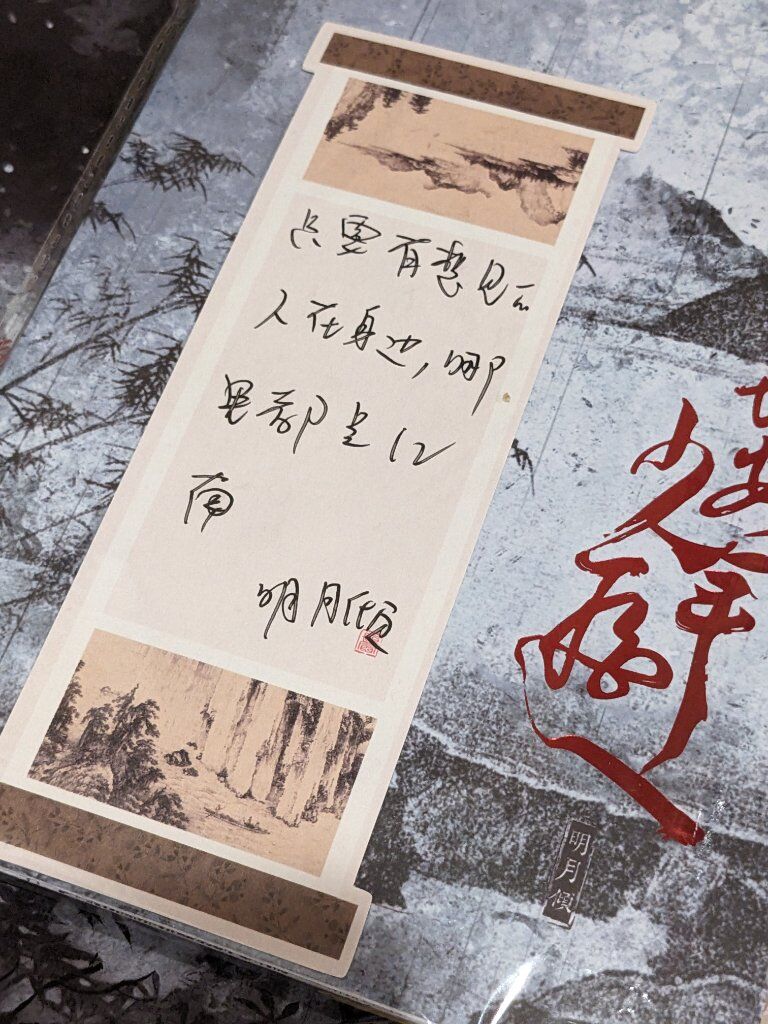 只要有想见的
人在身边,哪
里都是江
南
明月倾
少年游
明月倾